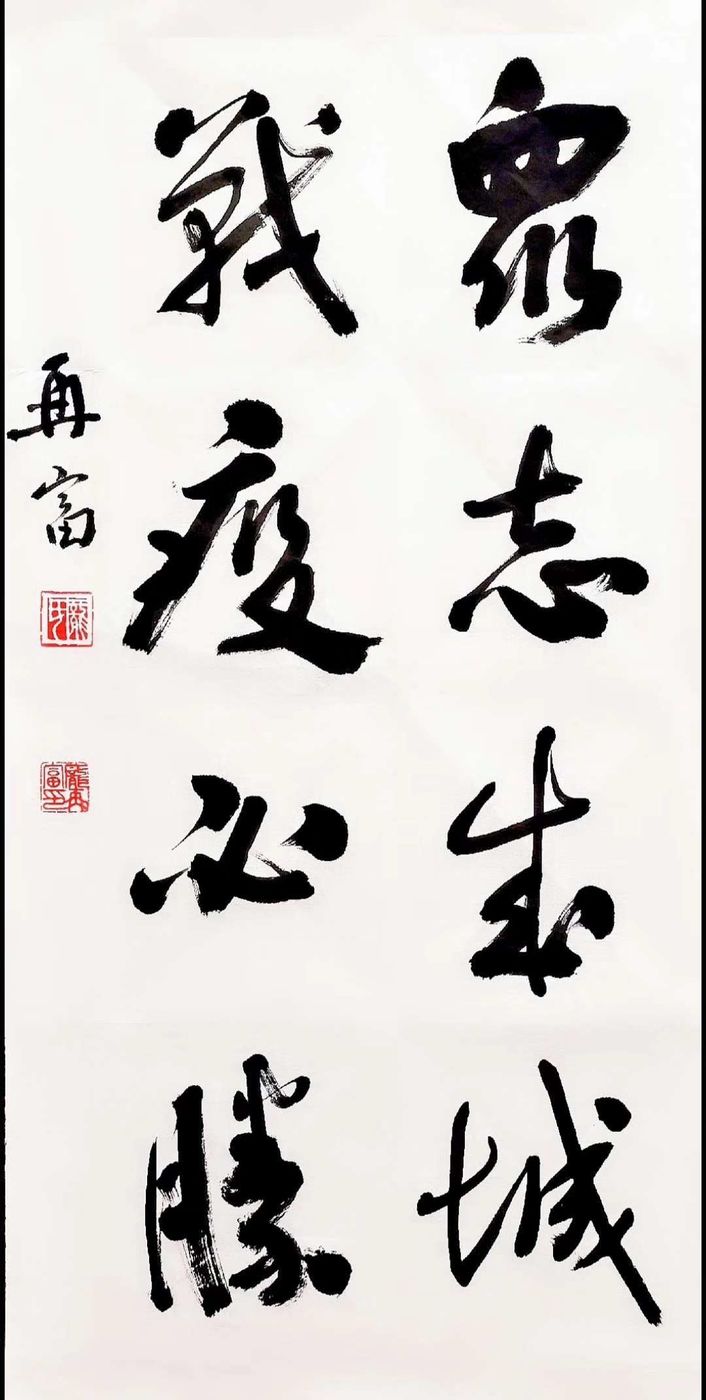 衆志成城
戰疫必勝
再富